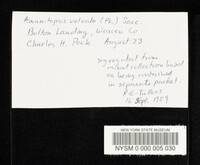 Amanitopsis volvata (Pk.) Sacc.
Bolton Landing, Warren Co.
Charles H. Peck August 23
segregated from
mixed collection based
on being contained
in separate packet.
R.E. Tulloss
16 Sept. 1989
NEW YORK STATE MUSEUM
NYSM 0 000 005 030